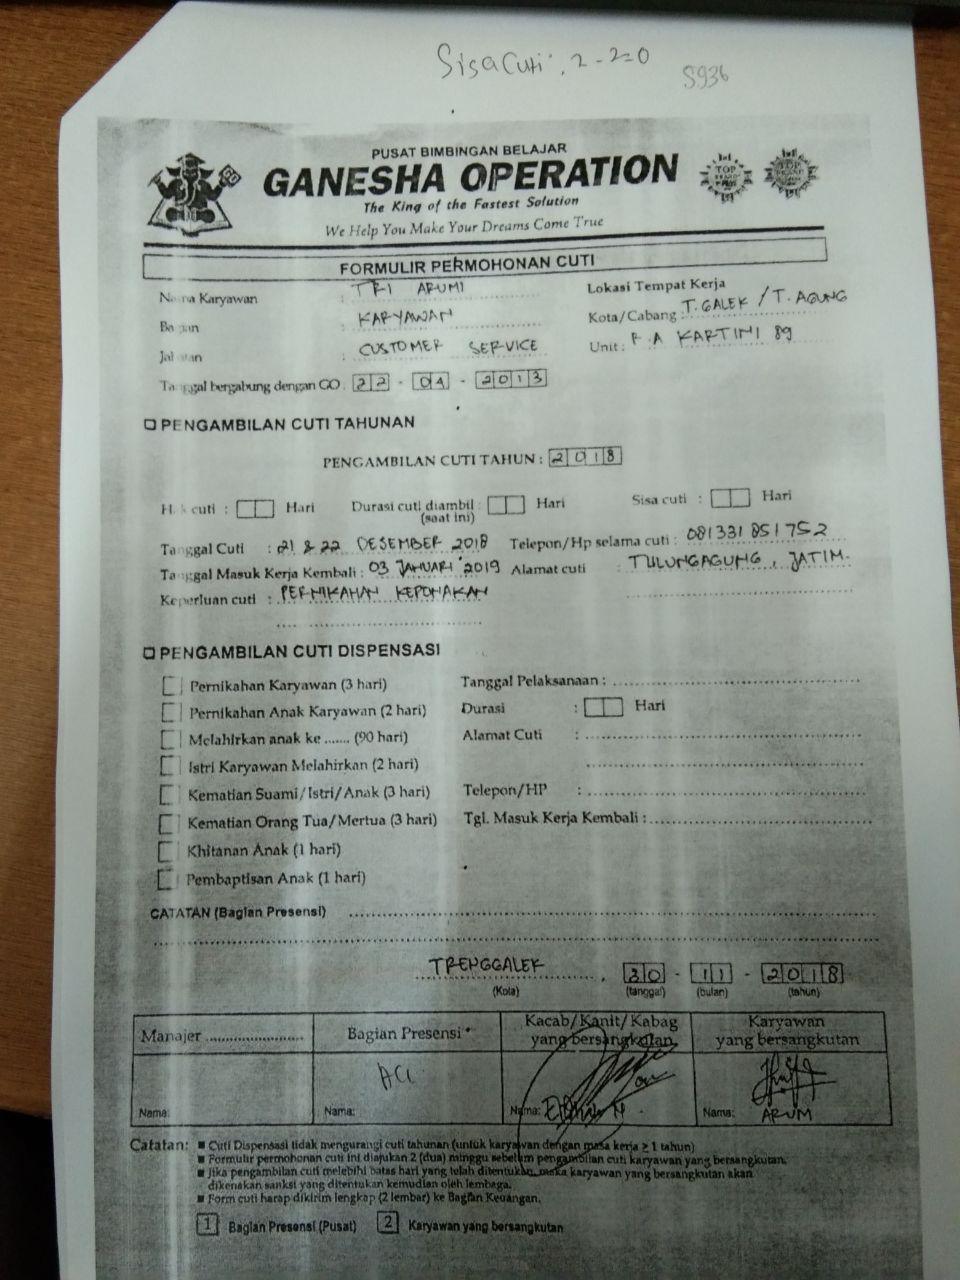 Sisa Cuti : 2 - 2 = 0
5936
PUSAT BIMBINGAN BELAJAR
GANESHA OPERATION
The King of the Fastest Solution
We Help You Make Your Dreams Come True
TOP BRAND
TOP BRAND
FORMULIR PERMOHONAN CUTI
Nama Karyawan : TRI ARUMI
Bagian : KARYAWAN
Jabatan : CUSTOMER SERVICE
Tanggal bergabung dengan GO : 22 - 04 - 2013
Lokasi Tempat Kerja
Kota/Cabang : T. GALEK / T. AGUNG
Unit : R.A KARTINI 89
PENGAMBILAN CUTI TAHUNAN
PENGAMBILAN CUTI TAHUN : 2018
Hak cuti : Hari Durasi cuti diambil : Hari Sisa cuti : Hari
(saat ini)
Tanggal Cuti : 21 & 22 DESEMBER 2018 Telepon/Hp selama cuti : 081331851752
Tanggal Masuk Kerja Kembali : 03 JANUARI 2019 Alamat cuti : TULUNGAGUNG, JATIM.
Keperluan cuti : PERNIKAHAN KEPONAKAN
PENGAMBILAN CUTI DISPENSASI
Pernikahan Karyawan (3 hari)
Pernikahan Anak Karyawan (2 hari)
Melahirkan anak ke ....... (90 hari)
Istri Karyawan Melahirkan (2 hari)
Kematian Suami/Istri/Anak (3 hari)
Kematian Orang Tua/Mertua (3 hari)
Khitanan Anak (1 hari)
Pembaptisan Anak (1 hari)
Tanggal Pelaksanaan :
Durasi : Hari
Alamat Cuti :
Telepon/HP :
Tgl. Masuk Kerja Kembali :
CATATAN (Bagian Presensi)
TRENGGALEK, 30 - 11 - 2018
(Kota) (tanggal) (bulan) (tahun)
Manajer ........................
Nama:
Bagian Presensi
Nama:
Kacab/Kanit/Kabag
yang bersangkutan
Nama:
Karyawan
yang bersangkutan
Nama: ARUM
Catatan: ■ Cuti Dispensasi tidak mengurangi cuti tahunan (untuk karyawan dengan masa kerja ≥ 1 tahun)
■ Formulir permohonan cuti ini diajukan 2 (dua) minggu sebelum pengambilan cuti karyawan yang bersangkutan.
■ Jika pengambilan cuti melebihi batas hari yang telah ditentukan, maka karyawan yang bersangkutan akan
dikenakan sanksi yang ditentukan kemudian oleh lembaga.
■ Form cuti harap dikirim lengkap (2 lembar) ke Bagian Keuangan.
1 Bagian Presensi (Pusat) 2 Karyawan yang bersangkutan